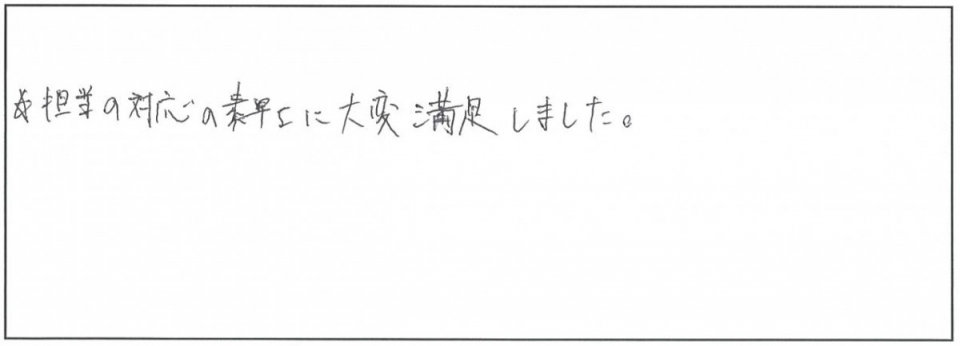 担当の対応の素早さに大変満足しました。